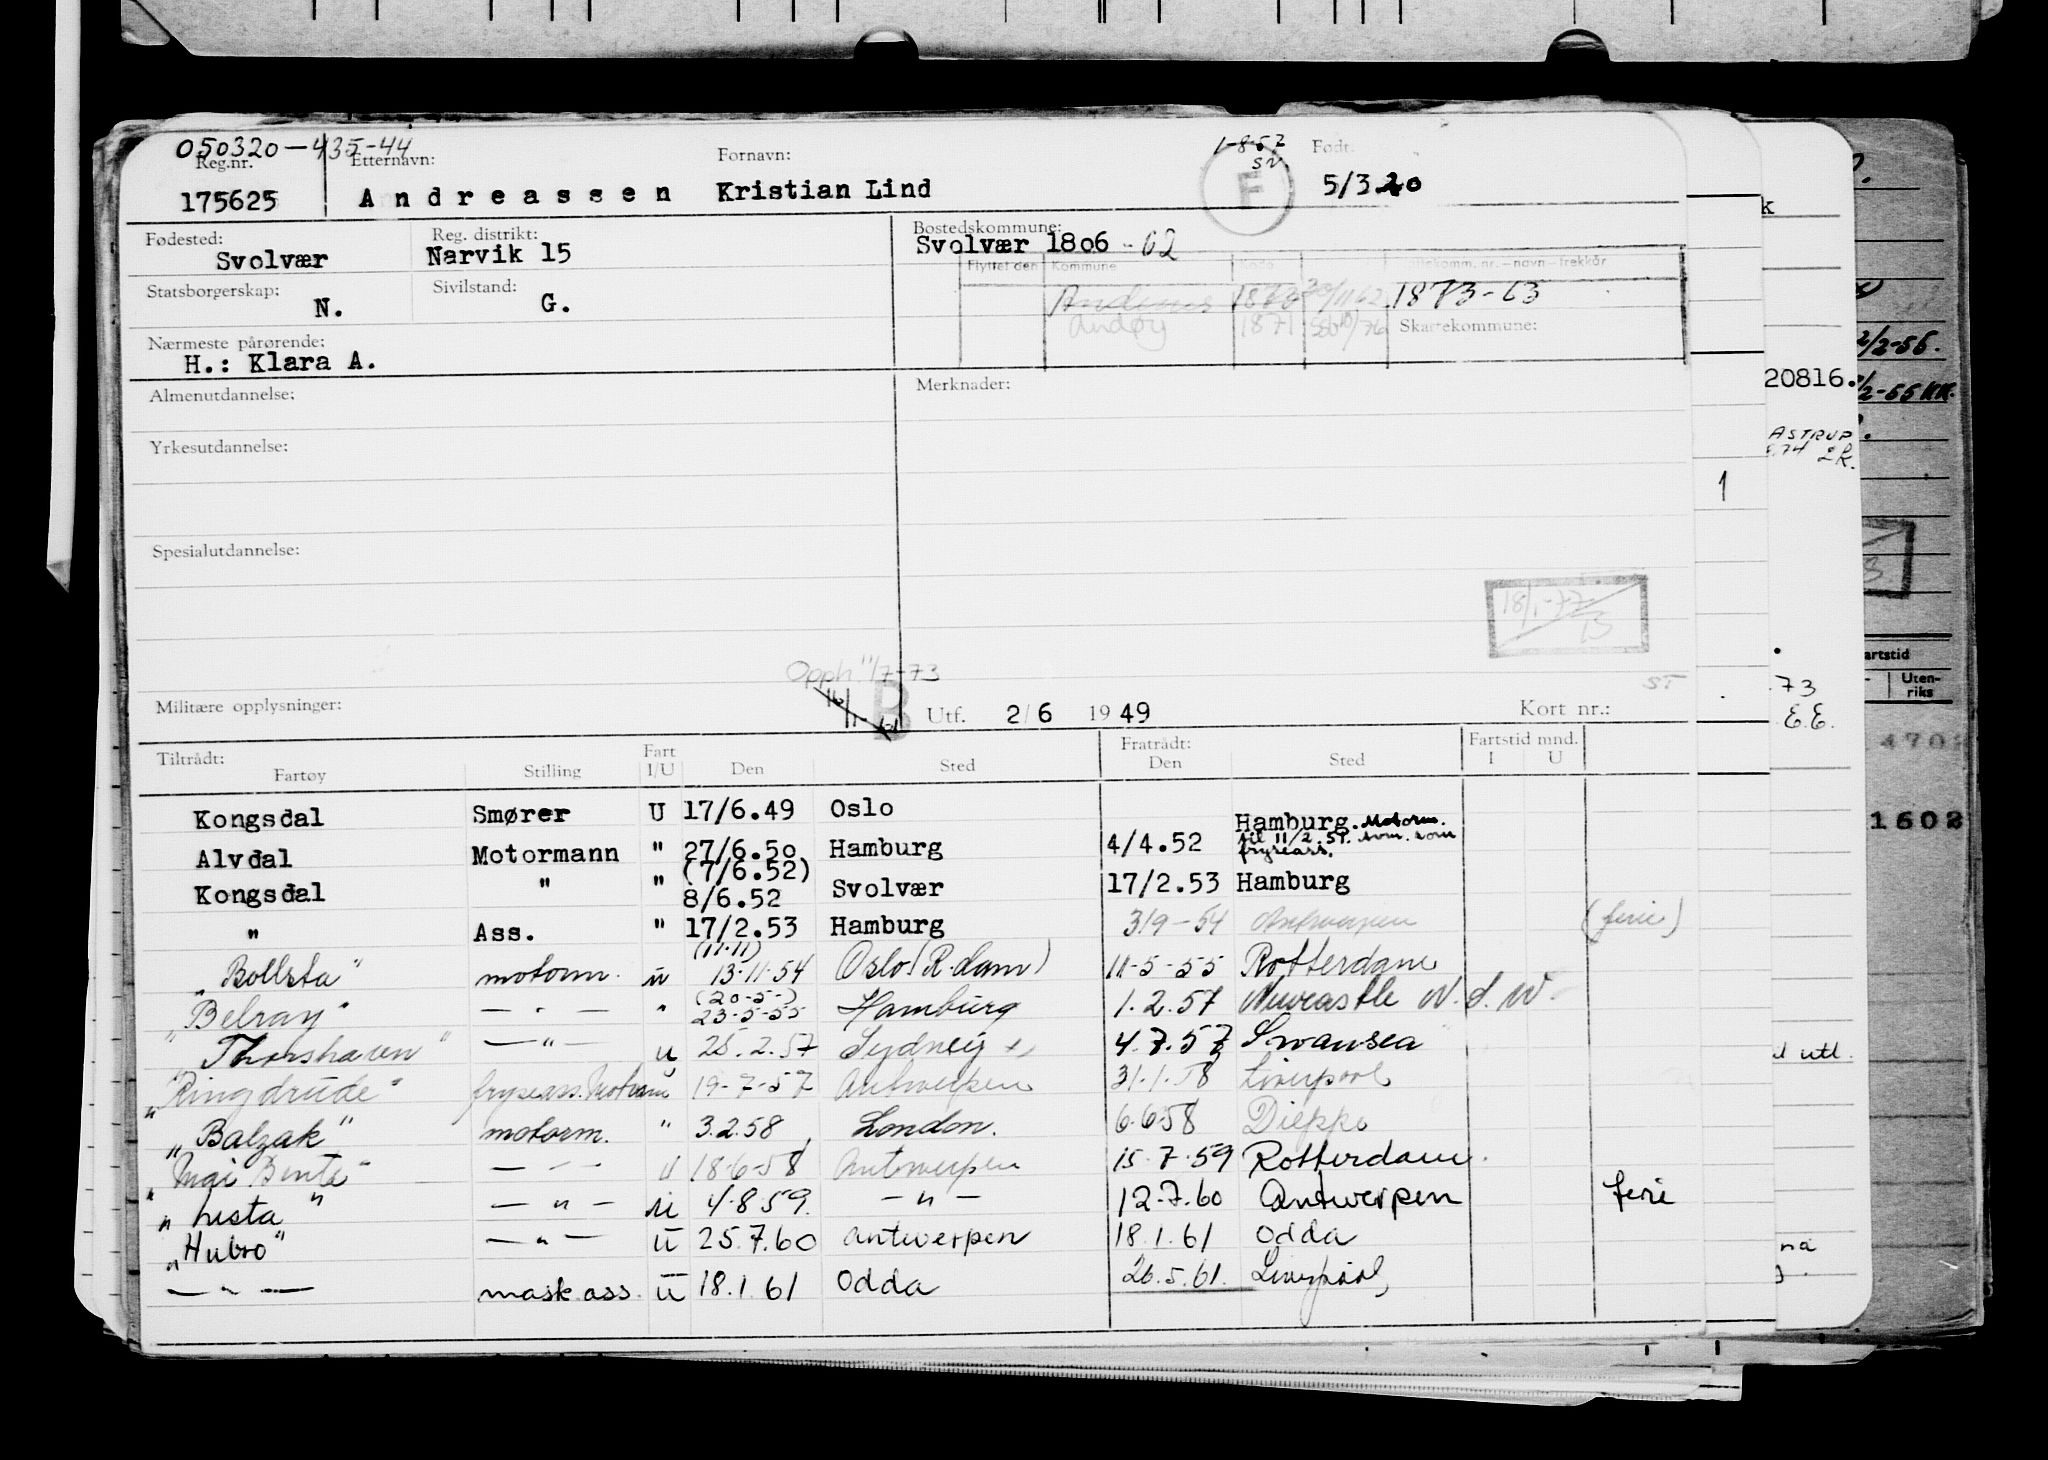 050320-435-44
Reg.nr. Etternavn: Fornavn: 1-8-57 Født.
SN
175625 Andreassen Kristian Lind F 5/3 20
Fødested: Reg. distrikt: Bostedskommune:
Svolvær Narvik 15 Svolvær 1806 - 62
Flyttet den Kommune
Statsborgerskap: Sivilstand:
N. G. 1873 1873-63
Andøy 1871 Skattekommune:
Nærmeste pårørende:
H.: Klara A.
Almenutdannelse: Merknader:
Yrkesutdannelse:
Spesialutdannelse:
18/1-77
13
Opph. 11/7-73
ST
Militære opplysninger: B Utf. 2/6 1949 Kort nr.:
Tiltrådt: Fart Fratrådt: Fartstid mnd.
Fartøy Stilling I/U Den Sted Den Sted I U
Kongsdal Smører U 17/6.49 Oslo
Alvdal Motormann " 27/6.50 Hamburg 4/4.52 Hamburg. Motorm. til 11/2.51. som fryseass.
Kongsdal " " (7/6.52) 8/6.52 Svolvær 17/2.53 Hamburg
" Ass. " 17/2.53 Hamburg 3/9-54 Antwerpen (ferie)
"Bollsta" motorm. u (11.11) 13-11-54 Oslo (R.dam) 11-5-55 Rotterdam
"Belray" — " — " (20-5-) 23-5-55 Hamburg 1.2.57 Newcastle N.S.W.
"Thorshavn" — " — u 25.2.57 Sydney 4.7.57 Swansea
"Ringdrude" fryseass. Motorm u 19-7-57 Antwerpen 31.1.58 Liverpool
"Balzak" motorm. " 3.2.58 London. 6.6.58 Dieppe
"Mai Bente" — " — u 18-6-58 Antwerpen 15.7.59 Rotterdam.
"Lista" — " — u 4.8.59. — " — 12.7.60 Antwerpen ferie
"Hubro" — " — u 25.7.60 Antwerpen 18.1.61 Odda
— " — mask.ass. u 18.1.61 Odda 26.5.61. Liverpool
k
20816.
ASTRUP
1
73
E.E.
2/2-56.
artstid
Uten-
riks
4702
1602
utl.